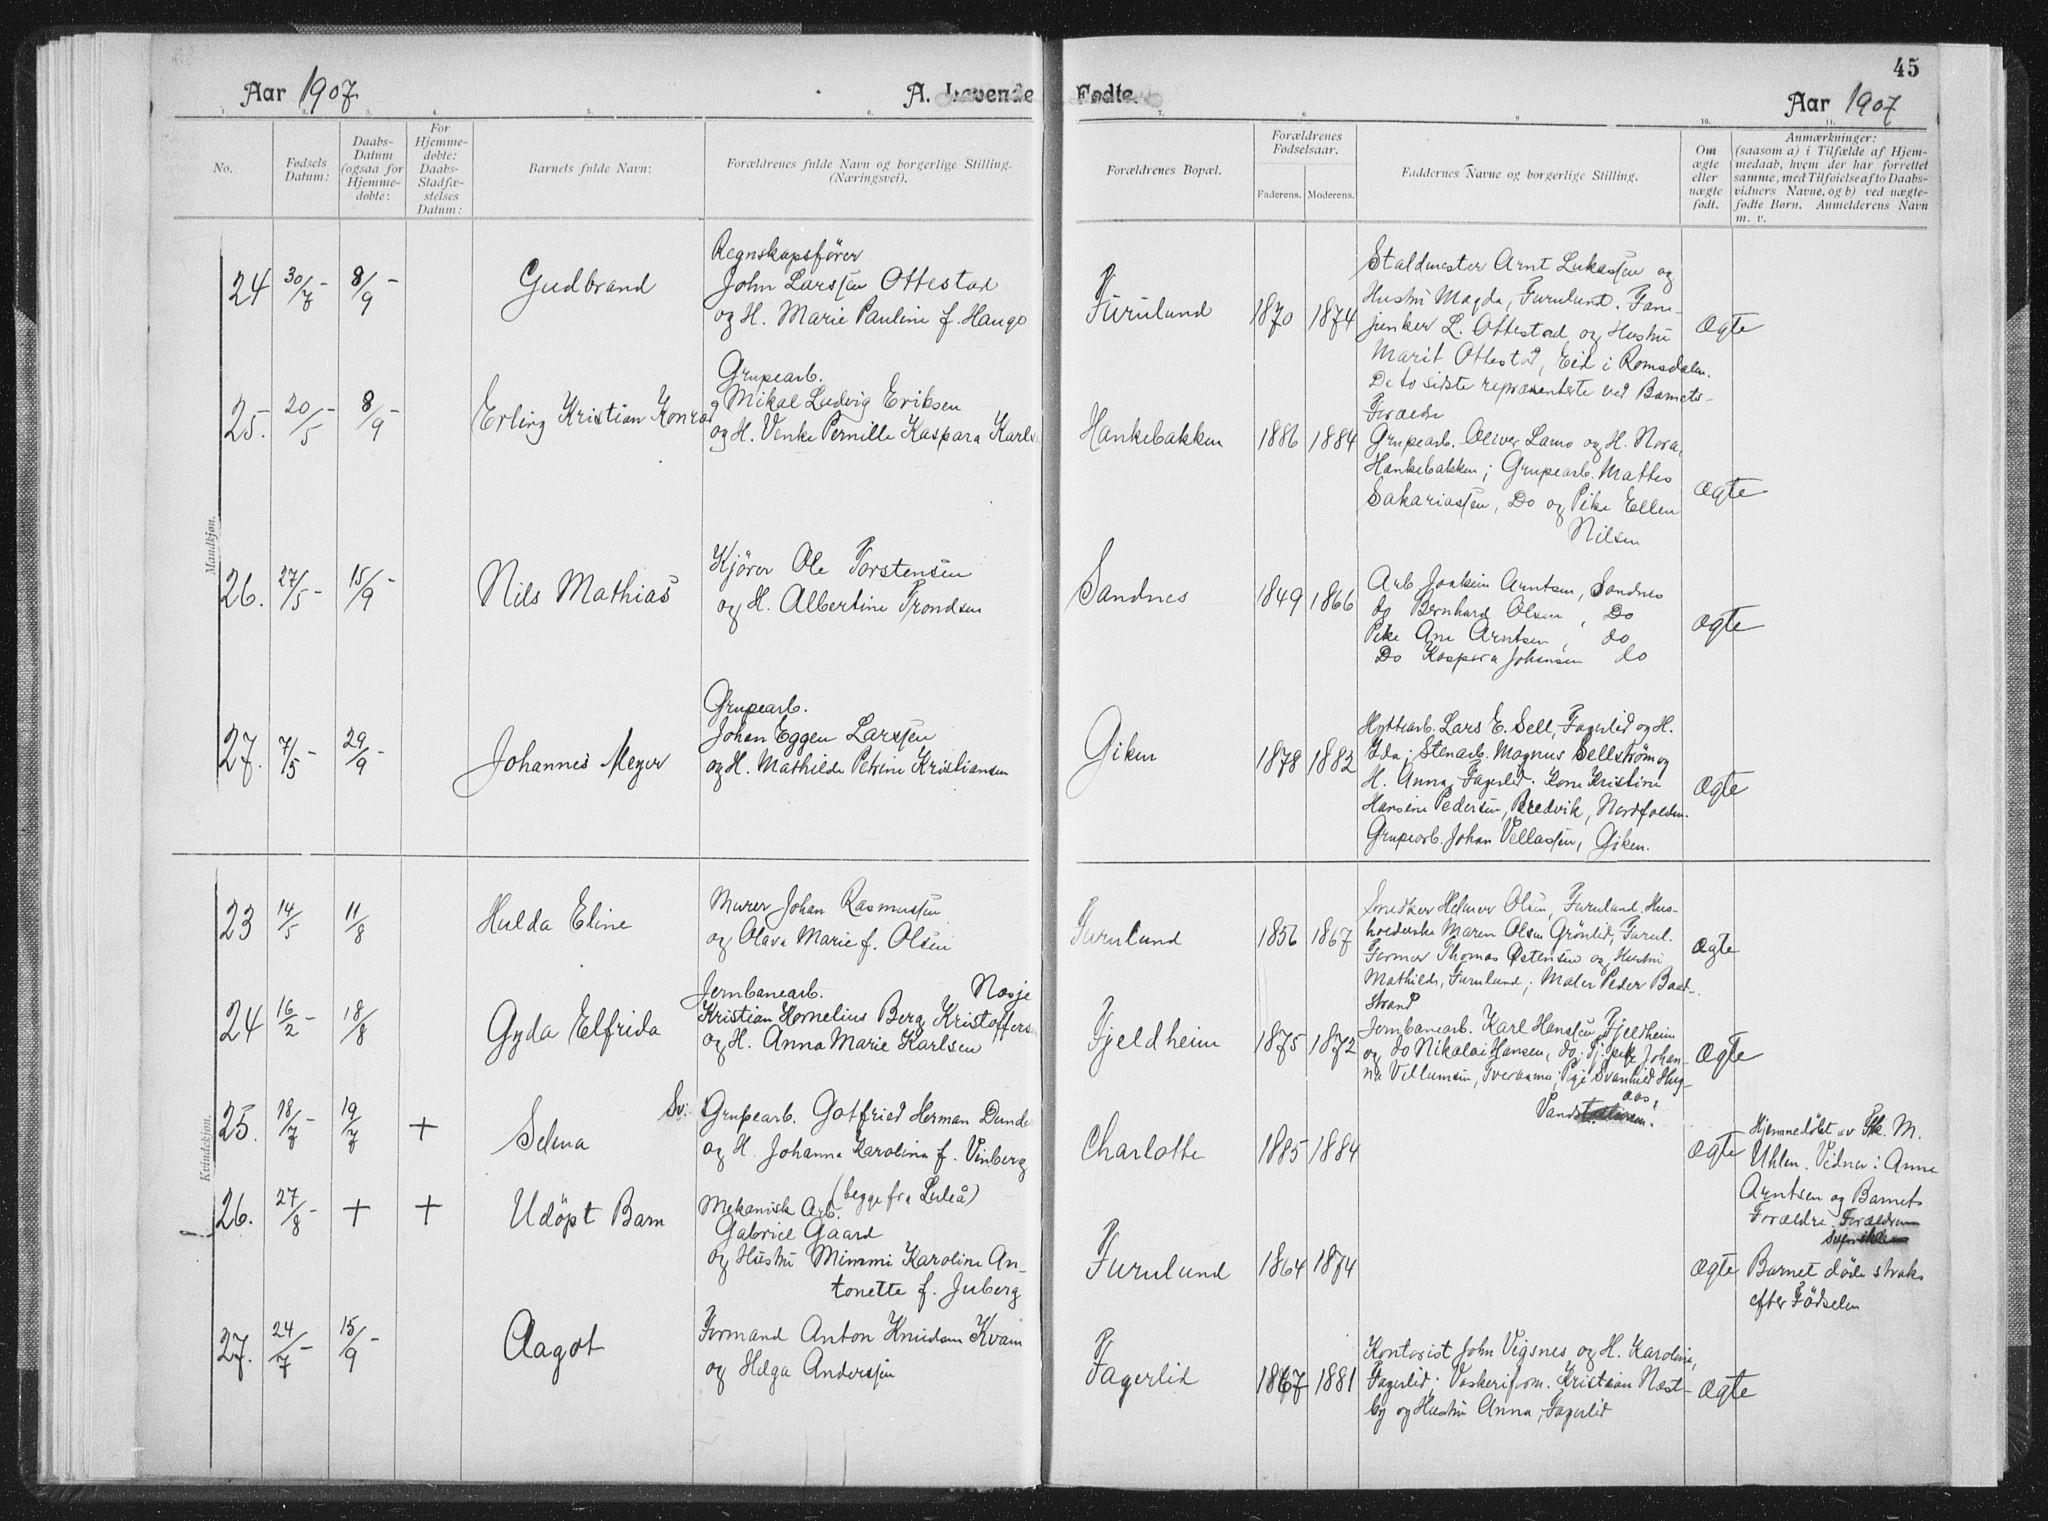 45
Aar 1907
A. Levende Fødte.
Aar 1907
1. 2. 3. 4. 5. 6. 7. 8. 9. 10. 11.
No.
Fødsels Datum:
Daabs-Datum (ogsaa for Hjemme-døbte:
For Hjemme-døbte: Daabs-Stadfæ-stelses Datum:
Barnets fulde Navn:
Forældrenes fulde Navn og borgerlige Stilling. (Næringsvei).
Forældrenes Bopæl.
Forældrenes Fødselsaar.
Faderens. Moderens.
Faddernes Navne og borgerlige Stilling.
Om ægte eller uægte født.
Anmærkninger:
(saasom a) i Tilfælde af Hjem-
medaab, hvem der har forrettet
samme, med Tilføielse af to Daabs-
vidners Navne, og b) ved uægte-
fødte Børn. Anmelderens Navn
m. v.
Mandkjøn.
24 30/7 - 8/9 - Gudbrand
Regnskapsfører
John Larssen Ottestad
og H. Marie Pauline f. Haugo
Furulund 1870 1874
Staldmester Arnt Lukassen og
Hustru Magda, Furulund. Fane-
junker L. Ottestad og Hustru
Marit Ottestad, Eid i Romsdalen.
De to sidste repræsenterte ved Barnets
Forældre
Ægte
25. 20/5 - 8/9 - Erling Kristian Konrad
Grupearb.
Mikal Ludvig Eriksen
og H. Venke Pernille Kaspara Karls
Hankebakken 1886 1884
Grupearb. Oliver Lamo og H. Nora,
Hankebakken; Grupearb. Mattes
Sakariassen, Do og Pike Ellen
Nilsen
Ægte
26. 27/5 - 15/9 - Nils Mathias
Kjører Ole Torstensen
og H. Albertine Trondsen
Sandnes 1849 1866
Arb. Joakim Arntsen, Sandnes
Do Bernhard Olsen, Do
Pike Ane Arntsen, do
Do Kaspara Johansen do
Ægte
27. 7/5 - 29/9 - Johannes Meyer
Grupearb.
Johan Eggen Larssen
og H. Mathilde Petrine Kristiansen
Giken 1878 1882
Hyttearb. Lars E. Sell, Fagerlid og H.
Ida; Stenarb. Magnus Sellström og
H. Anna, Fagerlid. Kone Kristine
Hansine Pedersen, Bredvik, Nordfolden.
Grupearb. Johan Vellassen, Giken.
Ægte
Kvindekjøn.
23 14/5 11/8 Hulda Eline
Murer Johan Rasmussen
og Olava Marie f. Olsen
Furulund 1856 1867
Snedker Helmer Olsen, Furulund. Hus-
holderske Maren Olsen Grönlid, Furul.
Former Thomas Østensen og Hustru
Mathilde, Furulund; Maler Peder Baad-
strand
Ægte
24 16/2 - 18/8 Gyda Elfrida
Jernbanearb. Næsje
Kristian Kornelius Berg Kristoffers
og H. Anna Marie Karlsen
Fjeldheim 1875 1872
Jernbanearb. Karl Hanssen, Fjeldheim
og do Nikolai Hansen, do; Pike Johan-
na Villumsen, Sveraamo; Pige Svanhild Hug-
aas,
Ægte
25. 18/7 - 19/7 + Selma
Sv: Grupearb. Gotfried Herman Dunde
og H. Johanna Karolina f. Vinberg
(begge fra Luleå)
Charlotte 1885 1884
Ægte
Hjemmedöbt av Frk. M.
Uhlen. Vidner: Anne
Arntsen og Barnets
Forældre.
26. 27/8 - + + Udöpt Barn
Mekanisk Arb.
Gabriel Gaard
og Hustru Mimmi Karoline An-
tonette f. Juberg
Furulund 1864 1874
Ægte
Barnet döde straks
efter Födselen
27. 24/7 - 15/9 - Aagot
Formand Anton Knudsen Kvam
og Helga Anderssen
Fagerlid 1867 1881
Kontorist John Vigsnes og H. Karoline,
Fagerlid; Vaskeriform. Kristian Næst-
by og Hustru Anna, Fagerlid
Ægte